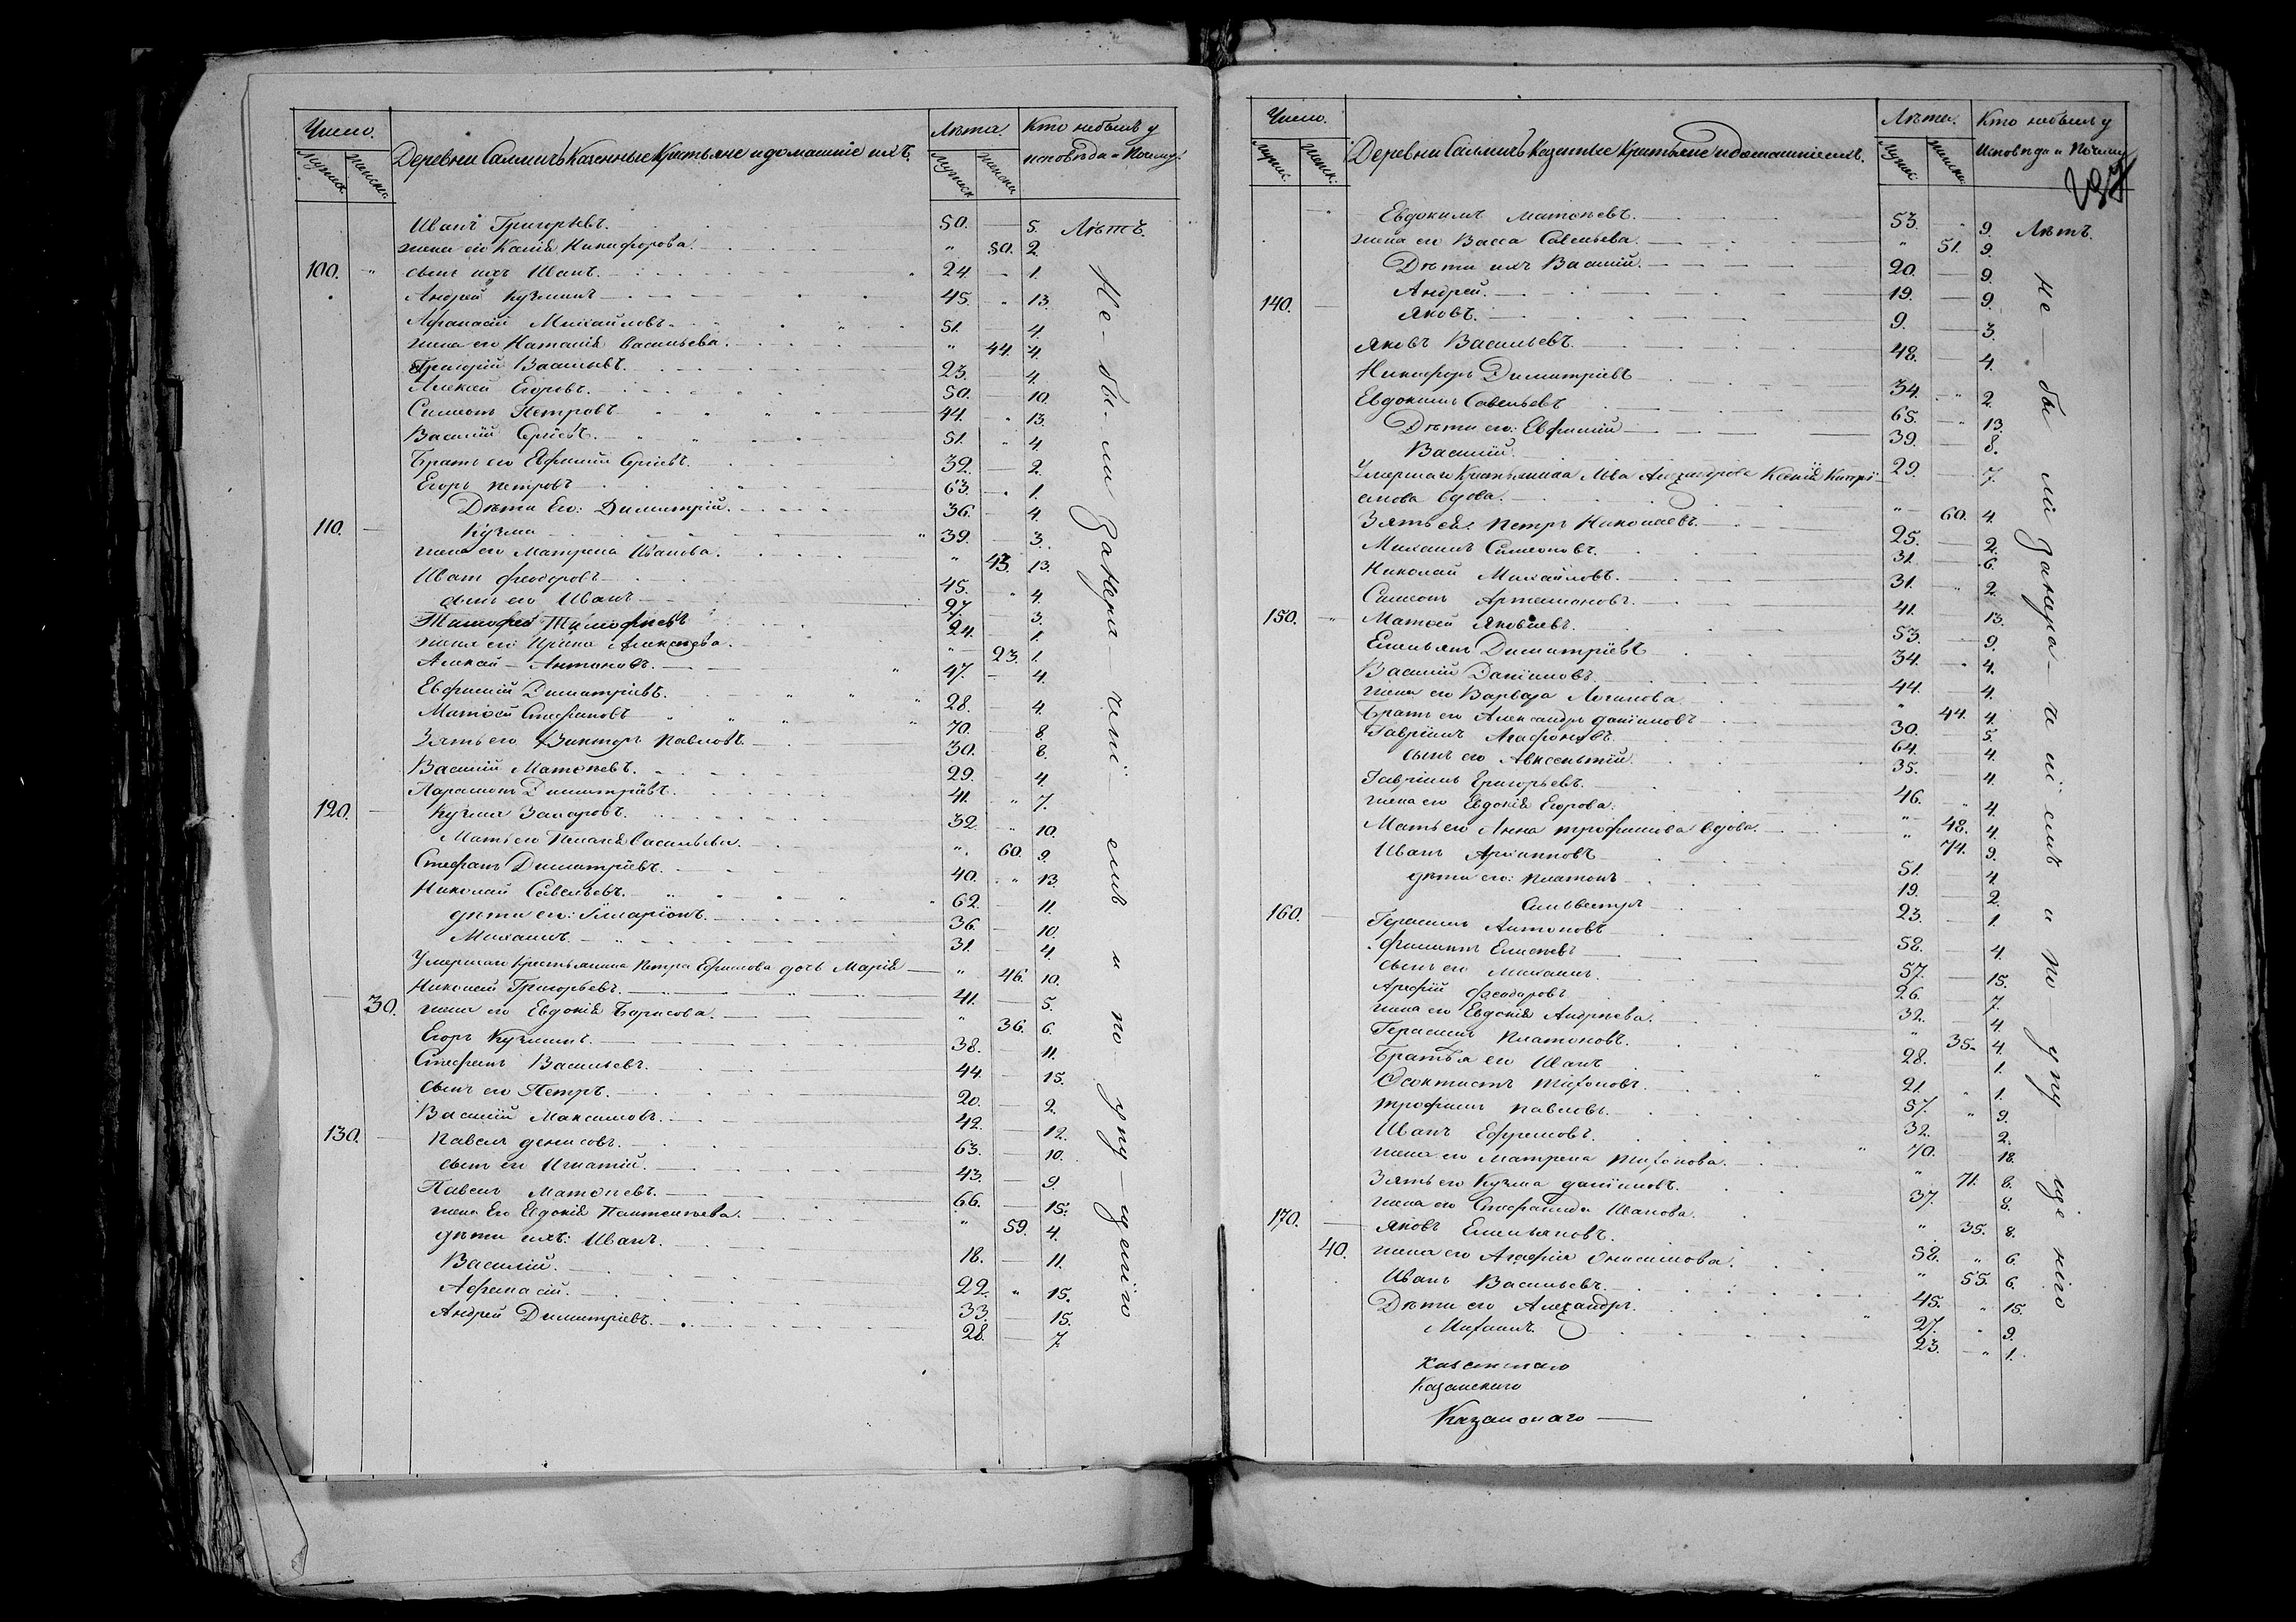 Число.
Лѣта.
Кто небылъ у
исповѣди и Почему.
Деревни Салмишъ Казенные Крестьяне и домашніе ихъ.
Мужеск.
Женска.
Мужеск.
Женска.
Иванъ Григорьевъ. 50. 5. Лѣтъ.
жена его Никифорова. " 50. 2.
100. " сынъ ихъ Иванъ. 24. 1.
Андрей Кузминъ 45. " 13.
Афанасій Михайловъ. 51. 4.
жена его Наталія Васильева. " 44. 4.
Григорій Васильевъ. 23. 4.
Алексѣй Егоровъ. 50. 10.
Симеонъ Петровъ 44. " 13.
Василій Сергіевъ. 51. " 4.
Братъ его Ефимій Сергіевъ. 32. 2.
Егоръ Петровъ 63. " 1.
Дѣти Его: Димитрій. 36. 4.
110. Кузма 39. 3.
жена его Матрена Иванова. " 43. 13.
Иванъ Феодоровъ 45. " 4.
сынъ его Иванъ 27. 3.
Тимофей Тимофѣевъ 24. 1.
жена его Ирина Алексѣева. " 23. 1.
Алексѣй Антоновъ. 47. 4.
Ефимій Димитріевъ. 28. 4.
Матѳей Стефановъ 70. 8.
Зять его Викторъ Павловъ. 30. 8.
Василій Матѳѣевъ. 29. 4.
Парамонъ Димитріевъ. 41. " 7.
120. Кузма Захаровъ. 32. " 10.
Мать его Пелагія Васильева. " 60. 9.
Стефанъ Димитріевъ. 40. " 13.
Николай Савельевъ. 62. 11.
дѣти его: Илларіонъ. 36. 10.
Михаилъ. 31. 4.
Умершаго Крестьянина Петра Ефимова дочь Марія " 46. 10.
Николай Григорьевъ. 41. 5.
30. жена его Евдокія Борисова. " 36. 6.
Егоръ Кузминъ. 38. 11.
Стефанъ Васильевъ. 44. 15.
Сынъ его Петръ. 20. 2.
Василій Максимовъ. 42. 12.
130. Павелъ Денисовъ. 63. 10.
сынъ его Игнатій. 43. 9.
Павелъ Матѳѣевъ. 66. 15.
жена Его Евдокія Пантелѣева. " 59. 4.
дѣти ихъ: Иванъ. 18. 11.
Василій. 22. " 15.
Афанасій. 33. 15.
Андрей Димитріевъ. 28. 7.
Не-бы-ли за нера чені емъ и по упу-щенію
Число.
Лѣта.
Кто небылъ у
Исповѣди и Почему
237
Деревни Салмишъ Казенные Крестьяне и домашніе ихъ.
Мужес.
Женск.
Мужес.
Женска.
Евдокимъ Матѳѣевъ. 53. " 9. Лѣтъ.
жена его Васса Савельева. " 51. 9.
Дѣти ихъ Василій. 20. 9.
Андрей. 19. 9.
140. Яковъ. 9. 3.
Яковъ Васильевъ. 48. 4.
Никифоръ Димитріевъ 34. " 2.
Евдокимъ Савельевъ 65. " 13.
Дѣти его: Ефимій 39. 8.
Василій. 29. 7.
Умершаго Крестьянина Льва Александрова Ксенія Кипрі-
анова вдова. " 60. 4.
Зять ея: Петръ Николаевъ. 25. 2.
Михаилъ Симеоновъ. 31. 6.
Николай Михайловъ. 31. " 2.
Симеонъ Артамоновъ. 41. 13.
150. " Матѳей Яковлевъ. 53. 9.
Емельянъ Димитріевъ 34. " 4.
Василій Даниловъ 44. 4.
жена его Варвара Логинова " 44. 4.
Братъ его Александръ Даниловъ 30. 5.
Гавріилъ Агафоновъ. 64. 4.
сынъ его Авксентій. 35. 4.
Гавріилъ Григорьевъ. 46. " 4.
жена его Евдокія Егорова. " 48. 4.
Мать его Анна Трофимова вдова. " 74. 9.
Иванъ Архиповъ 51. 4.
дѣти его: Платонъ 19. 2.
Сильвестръ 23. 1.
160. Герасимъ Антоновъ 58. 4.
Филиппъ Елисѣевъ 57. 15.
сынъ его Михаилъ. 26. 7.
Арефій Феодоровъ 32. 4.
жена его Евдокія Андреева. " 35. 4.
Герасимъ Платоновъ. 28. 1.
Братья его Иванъ 21. " 1.
Феоктистъ Тихоновъ. 57. " 9.
Трофимъ Павловъ. 32. 2.
Иванъ Ефремовъ. 70. 18.
жена его Матрена Тихонова. " 71. 8.
Зять его Кузма Даниловъ. 37. 8.
жена его Стефанида Иванова. " 35. 8.
170. Яковъ Емельяновъ. 58. " 6.
40. жена его Агафія Онисимова. " 55. 6.
Иванъ Васильевъ. 45. " 15.
Дѣти его Александръ. 27. " 9.
Михаилъ. 23. " 1.
не-бы ли за нера-чені емъ и по упу-ще нію
Казанскаго
Казанскаго